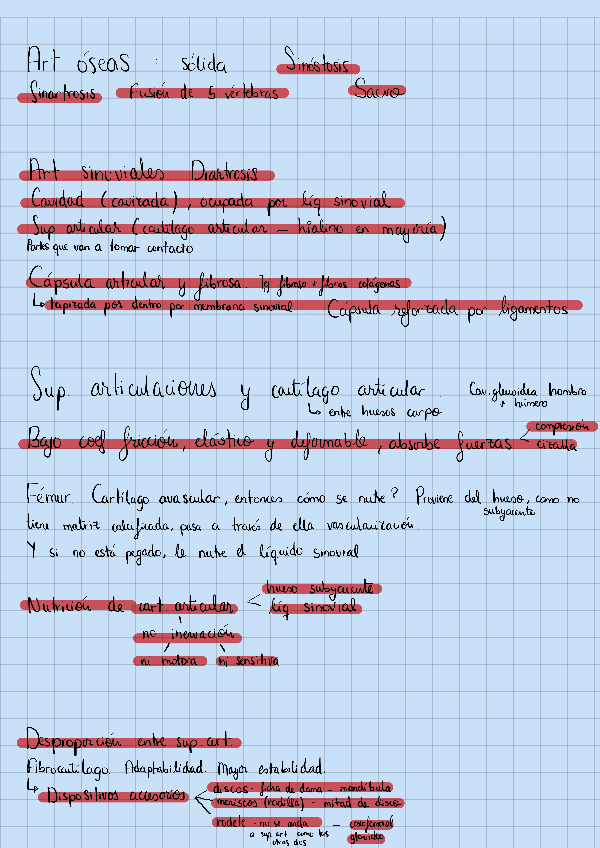 Art óseas : sólida Sinóstosis
Sinartrosis Fusión de 5 vértebras Sacro
Art sinoviales. Diartrosis
Cavidad (cavizada), ocupada por líq sinovial
Sup articular (cartílago articular – hialino en mayoría)
Partes que van a tomar contacto
Cápsula articular y fibrosa. Tej fibroso + fibras colágenas
↳ tapizada por dentro por membrana sinovial Cápsula reforzada por ligamentos
Sup. articulaciones y cartílago articular. Cav. glenoidea hombro
↳ entre huesos carpo + húmero
Bajo coef fricción, elástico y deformable, absorbe fuerzas < compresión
cizalla
Fémur. Cartílago avascular, entonces cómo se nutre? Proviene del hueso, como no
subyacente
tiene matriz calcificada, pasa a través de ella vascularización
Y si no está pegado, le nutre el líquido sinovial
Nutrición de cart. articular < hueso subyacente
líq sinovial
no inervación
ni motora ni sensitiva
Desproporción entre sup. art.
Fibrocartílago. Adaptabilidad. Mayor estabilidad.
↳ Dispositivos accesorios < discos - ficha de dama - mandíbula
meniscos (rodilla) - mitad de disco
rodete - no se anda – coxofemoral
a sup art como los glenoidea
otros dos